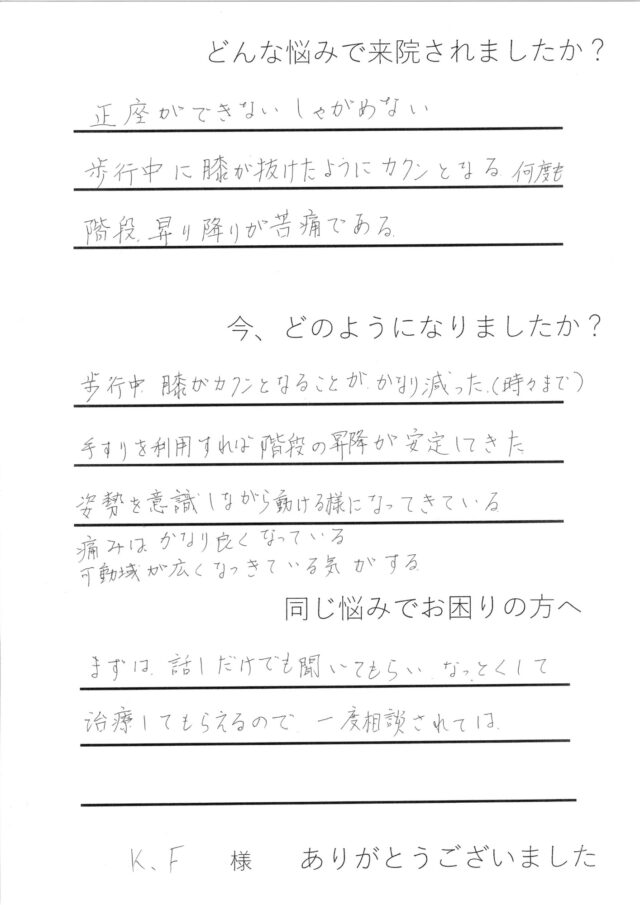 どんな悩みで来院されましたか？
正座ができない しゃがめない
歩行中に膝が抜けたようにカクンとなる 何度も
階段、昇り降りが苦痛である。
今、どのようになりましたか？
歩行中 膝がカクンとなることが、かなり減った。(時々まで)
手すりを利用すれば階段の昇降が安定してきた
姿勢を意識しながら動ける様になってきている
痛みは かなり良くなっている
可動域が広くなっきている気がする
同じ悩みでお困りの方へ
まずは、話しだけでも聞いてもらい なっとくして
治療してもらえるので 一度相談されては
K.F 様 ありがとうございました